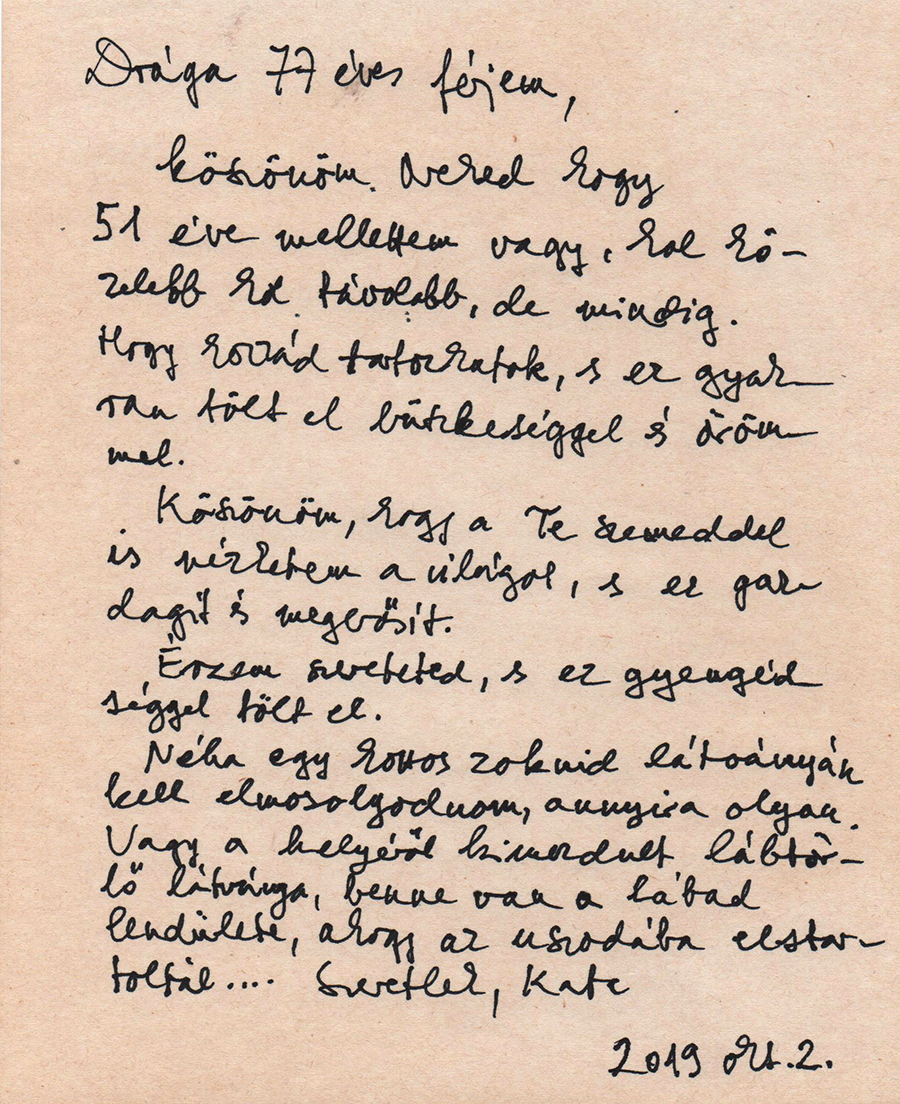 Drága 77 éves férjem,
köszönöm Neked hogy
51 éve mellettem vagy, hol kö-
zelebb hol távolabb, de mindig.
Hogy hozzád tartozhatok, s ez gyak
ran tölt el büszkeséggel és öröm
mel.
Köszönöm, hogy a Te szemeddel
is nézhetem a világot, s ez gaz
dagít és megerősít.
Érzem szereteted, s ez gyengéd
séggel tölt el.
Néha egy koszos zoknid látványán
kell elmosolyodnom, annyira olyan.
Vagy a helyéről kimozdult lábtör-
lő látványa, benne van a lábad
lendülete, ahogy az uszodába elstar-
toltál.... Szeretlek, Kata
2019 okt.2.